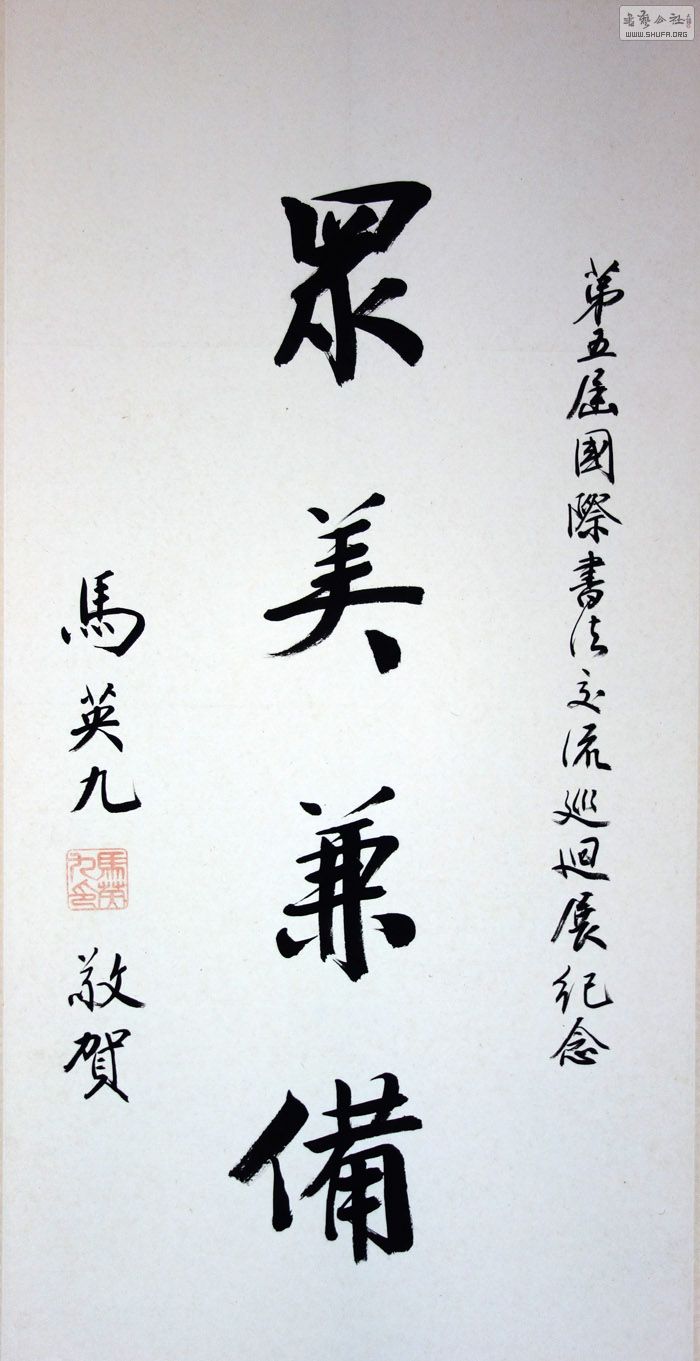 第五屆國際書法交流巡迴展紀念
眾美兼備
馬英九
馬英九印
敬賀
書藝公社
WWW.SHUFA.ORG